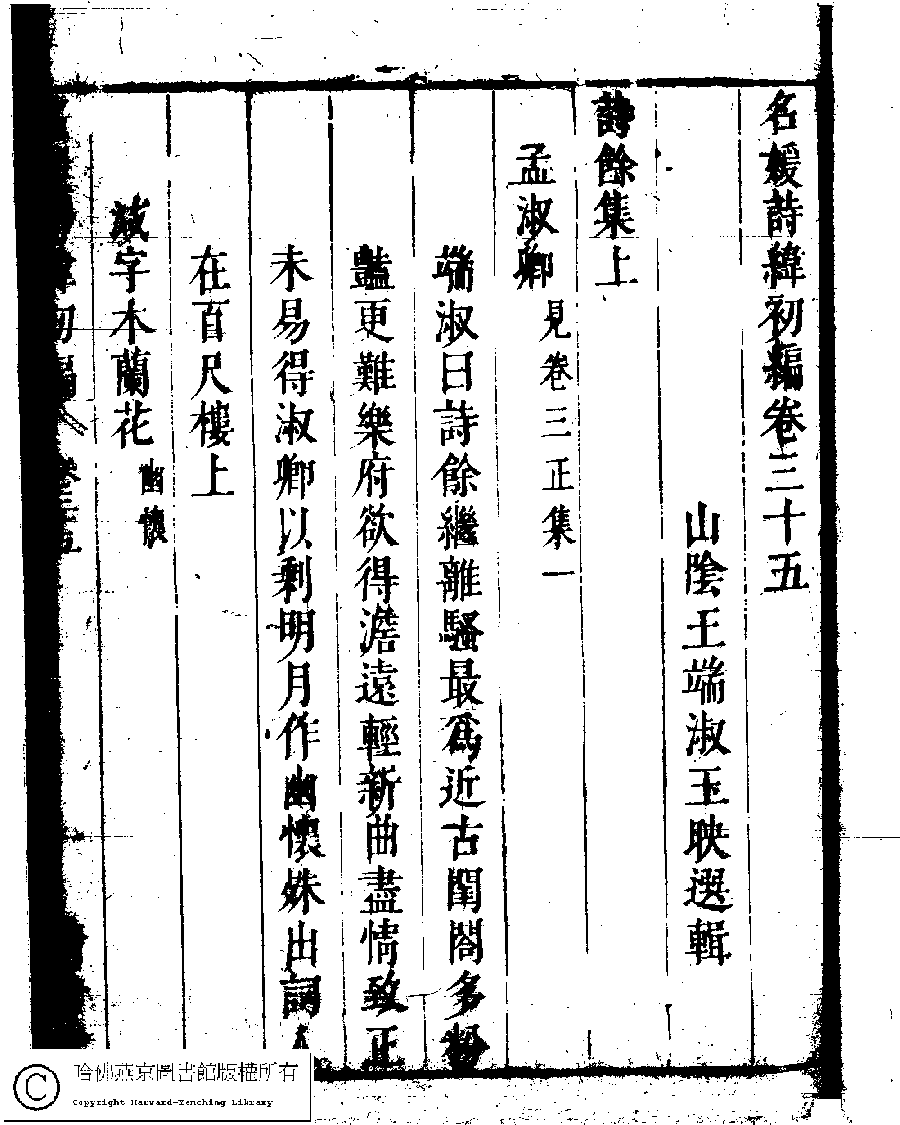 名媛詩緯初編卷三十五
山陰王端淑玉映選輯
詩餘集上
孟淑卿 見卷三正集一
端淑曰詩餘繼離騷最爲近古閨閣多粉
豔更難樂府欲得澹遠輕新曲盡情致正
未易得淑卿以剩明月作幽懷姝出詞人
在百尺樓上
減字木蘭花 幽懷
初編 卷三十五
哈佛燕京圖書館版權所有
Copyright Harvard-Yenching Library